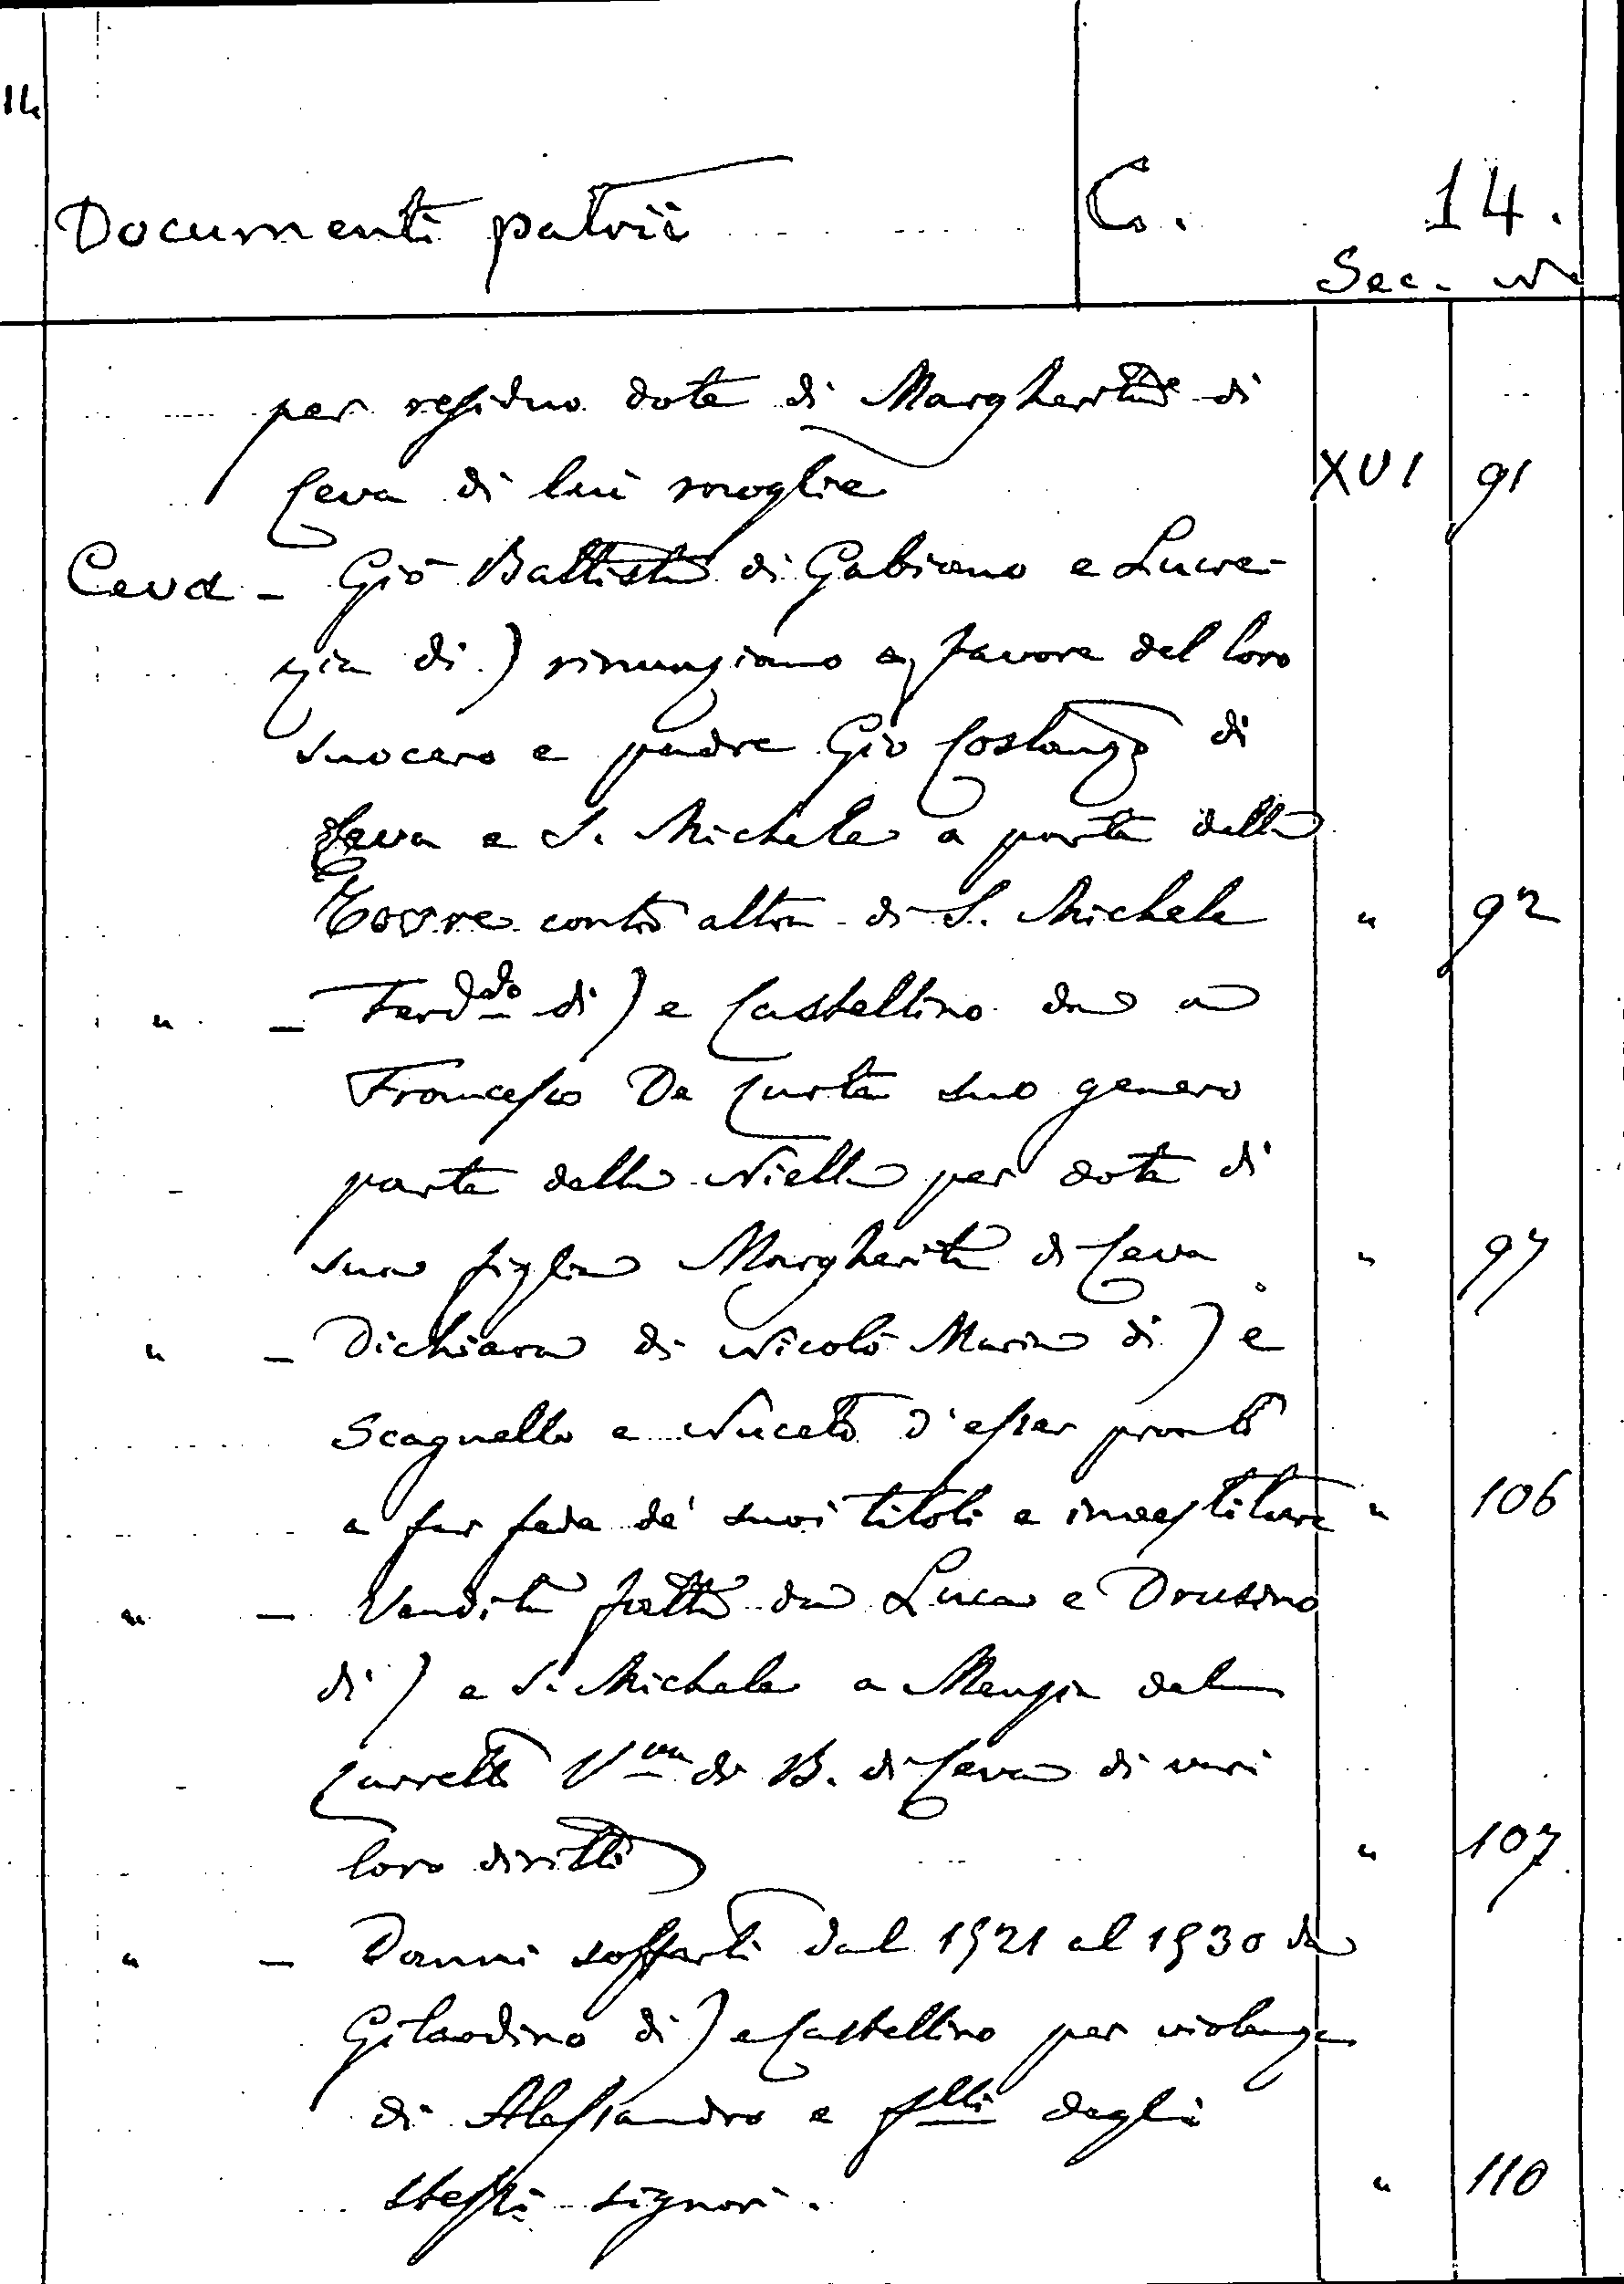 14
Documenti patrii C. 14.
Sec. N
per residuo dote di Margherita di
Ceva di lui moglie XVI 91
Ceva - Gio Battista di Gabiano e Lucre-
zia di) rinunziano a favore del loro
suocero e padre Gio Costanzo di
Ceva e S. Michele a parte della
Torre contro altra di S. Michele " 92
" - Ferd.do di) e Castellino da a
Francesco De Curte suo genero
parte della Niella per dote di
sua figlia Margherita di Ceva " 97
" - Dichiara di Nicolò Maria di) e
Scagnello e Nuceto d'esser pronto
a far fede de' suoi titoli e investiture " 106
" - Vendita fatta da Luca e Drusino
di) e S. Michele a Menzia del
Carretto V.va di B. di Ceva di vari
loro diritti " 107
" - Danni sofferti dal 1521 al 1530 da
Gilardino di) e Castellino per violenza
di Alessandro e f.lli degli
stessi signori. " 110